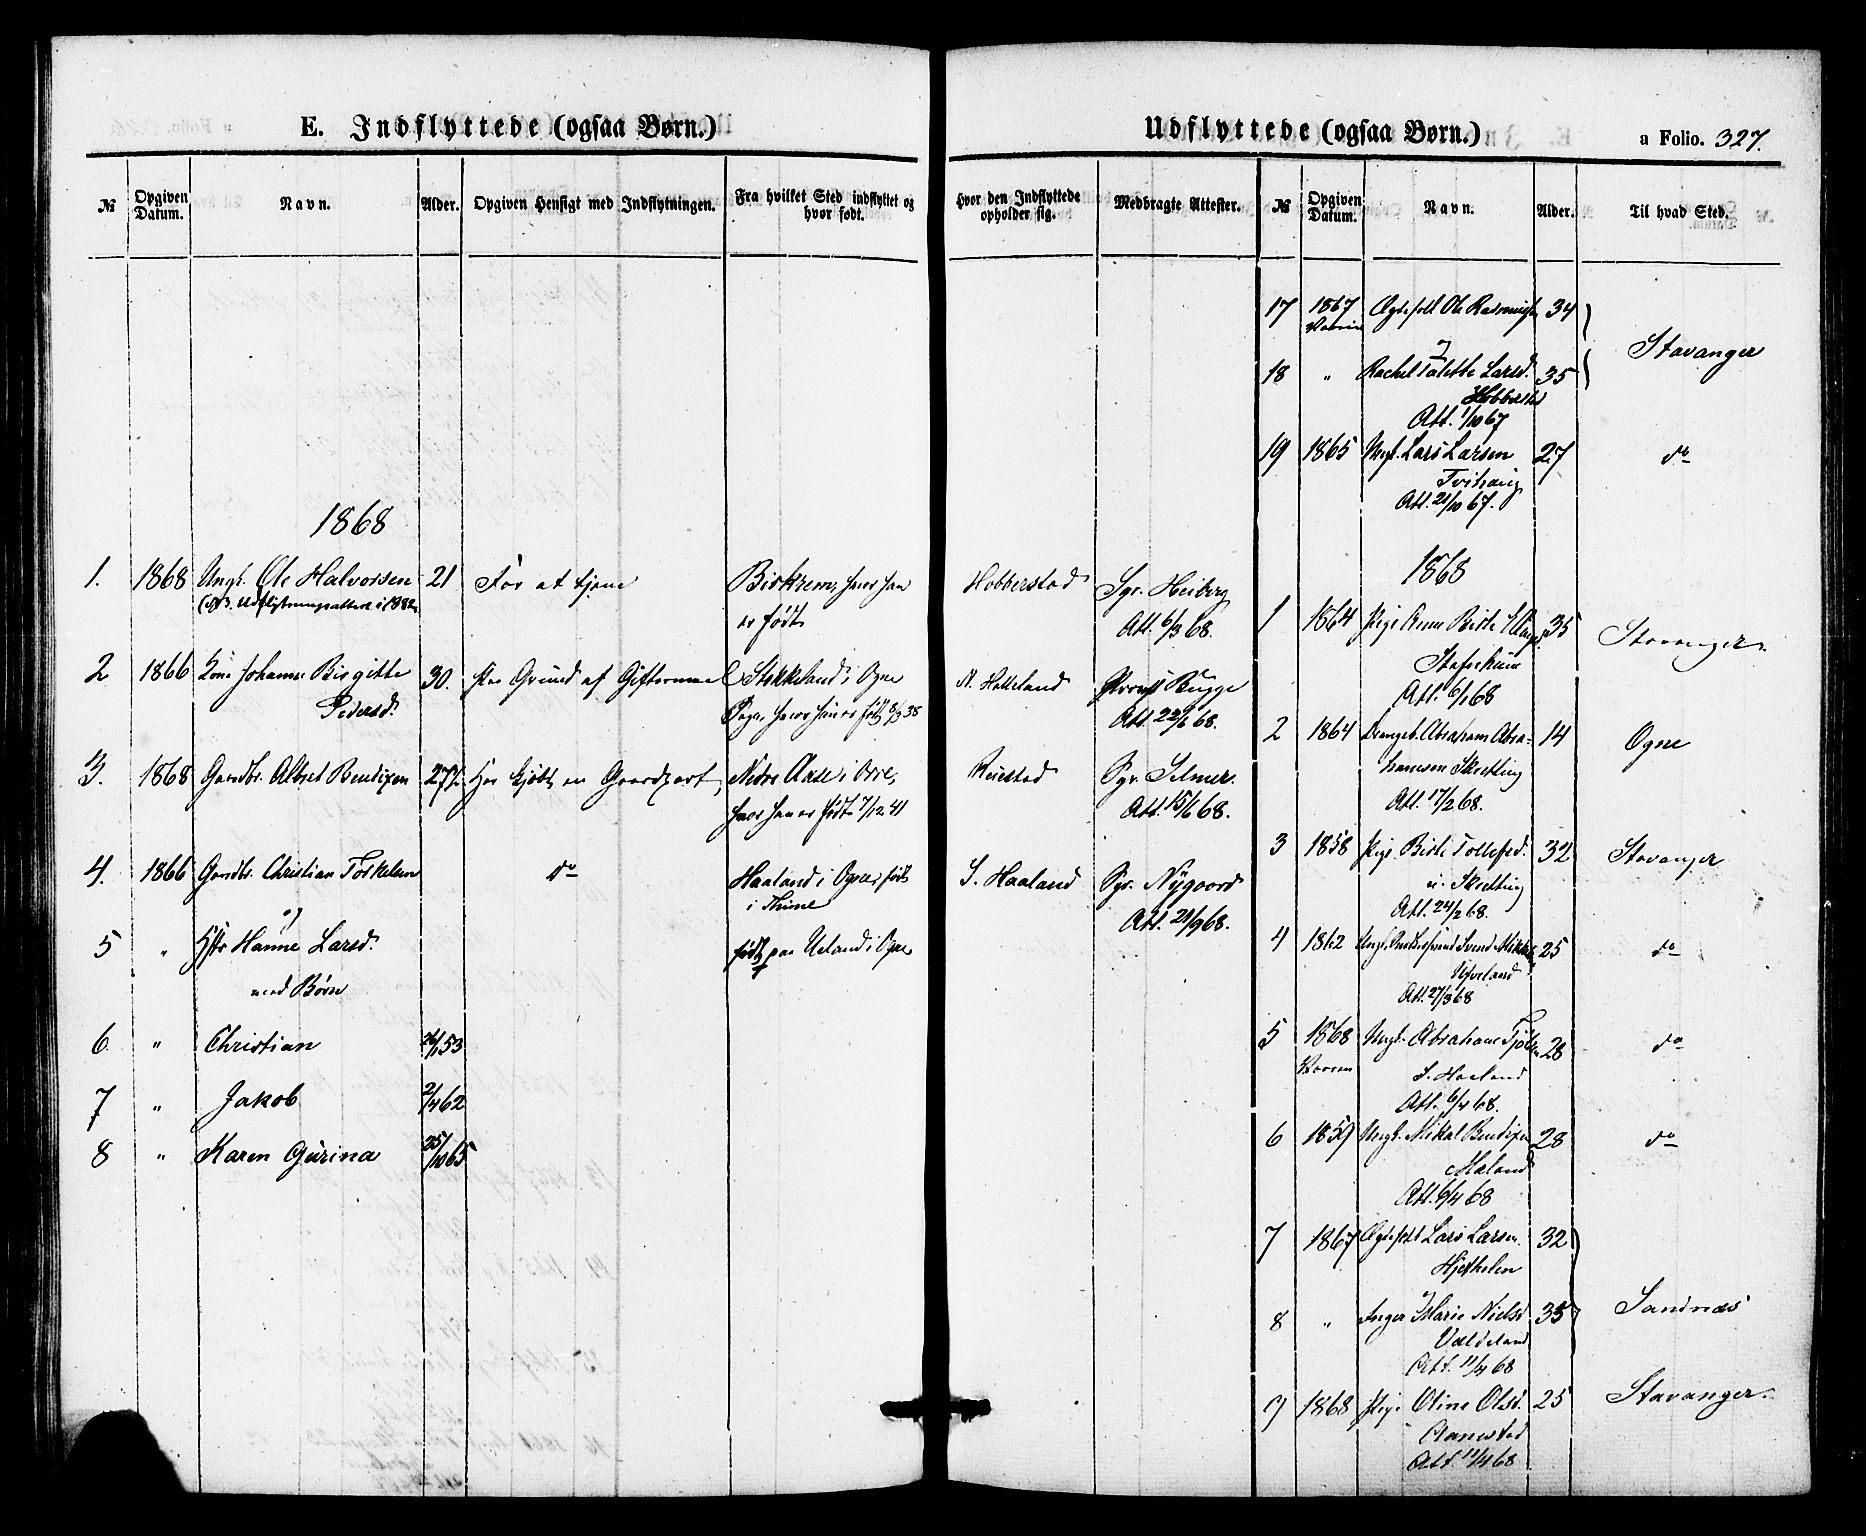 E. Indflyttede (ogsaa Børn.)
№ Opgiven Datum. Navn. Alder. Opgiven Hensigt med Indflytningen. Fra hvilket Sted indflyttet og hvor født.
Hvor den Indflyttede opholder sig. Medbragte Attester.
1868
1. 1868 Ungk. Ole Halvorsen 21 For at tjene Birkrem, hvor han Hobberstad Sgr. Heiberg
er født Att. 6/3 68.
2 1866 Kone Johanne Birgitte 30. paa Grund af Giftermaal Stokkeland i Ogne N. Helleland Provst Bugge
Pedersd. Sogn, hvor hun er født 8/9 38 Att. 22/6 68.
3. 1868 Gaardbr. Albret Bendixen 27 Har kjøbt en Gaardpart, Nedre Aase i Orre, Reiestad Sgr. Selmer.
hvor han er født 7/12 41 Att. 15/6 68.
4. 1866 Gaardbr. Christian Torkelsen do Haaland i Ogne, født S. Haaland Sgr. Nygaard
i Thime Att. 21/9 68.
og
5 " Hstr Hanne Larsd. født paa Ueland i Ogne
med Børn
6 " Christian 53
7 " Jakob 2/4 62
8 " Karen Gurina 25/10 65
Udflyttede (ogsaa Børn.)
a Folio. 327.
№ Opgiven Datum. Navn. Alder. Til hvad Sted.
17 1867 Ægtefolk Ole Rasmus 34
Vaaren
og Stavanger
18 " Rachel Talette Larsd. 35
Hobberstad
Att. 1/10 67
19 1865 Ungk. Lars Larsen 27 do
Tvihaug
Att. 21/10 67.
1868
1 1864 Pige Anne Birte 35 Stavanger.
Att. 6/1 68
2 1864 Drengeb. Abraham Abra- 14 Ogne
hamsen Skretting
Att. 17/2 68.
3 1858 Pige Birte Tollefsd. 32 Stavanger
n. Skretting
Att. 24/2 68.
4 1862 Ungk. Svend 25 do
Att. 27/3 68
5 1868 Ungk. Abraham 28 do
Vaaren S. Haaland
Att. 6/4 68.
6 1859 Ungk. Mikal Bendixen 28 do
Maland
Att. 6/4 68
7 1867 Ægtefolk Lars Larsen 32
og
Sandnæs
8 " Inger Marie Nielsd. 35
Att. 11/4 68
9 1868 Pige Oline Olsd. 25 Stavanger.
Aanestad
Att. 11/4 68